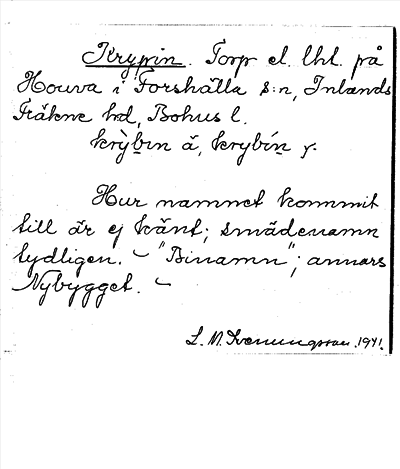 Krypin. Torp el. lhl. på
Houva i Forshälla s:n, Inlands
Fräkne hd, Bohus l.
krỳbın ä, krybín y.
Hur namnet kommit
till är ej känt; smädenamn
tydligen. – "Binamn"; annars
Nybygget. –
L. M. Svenungsson. 1941.